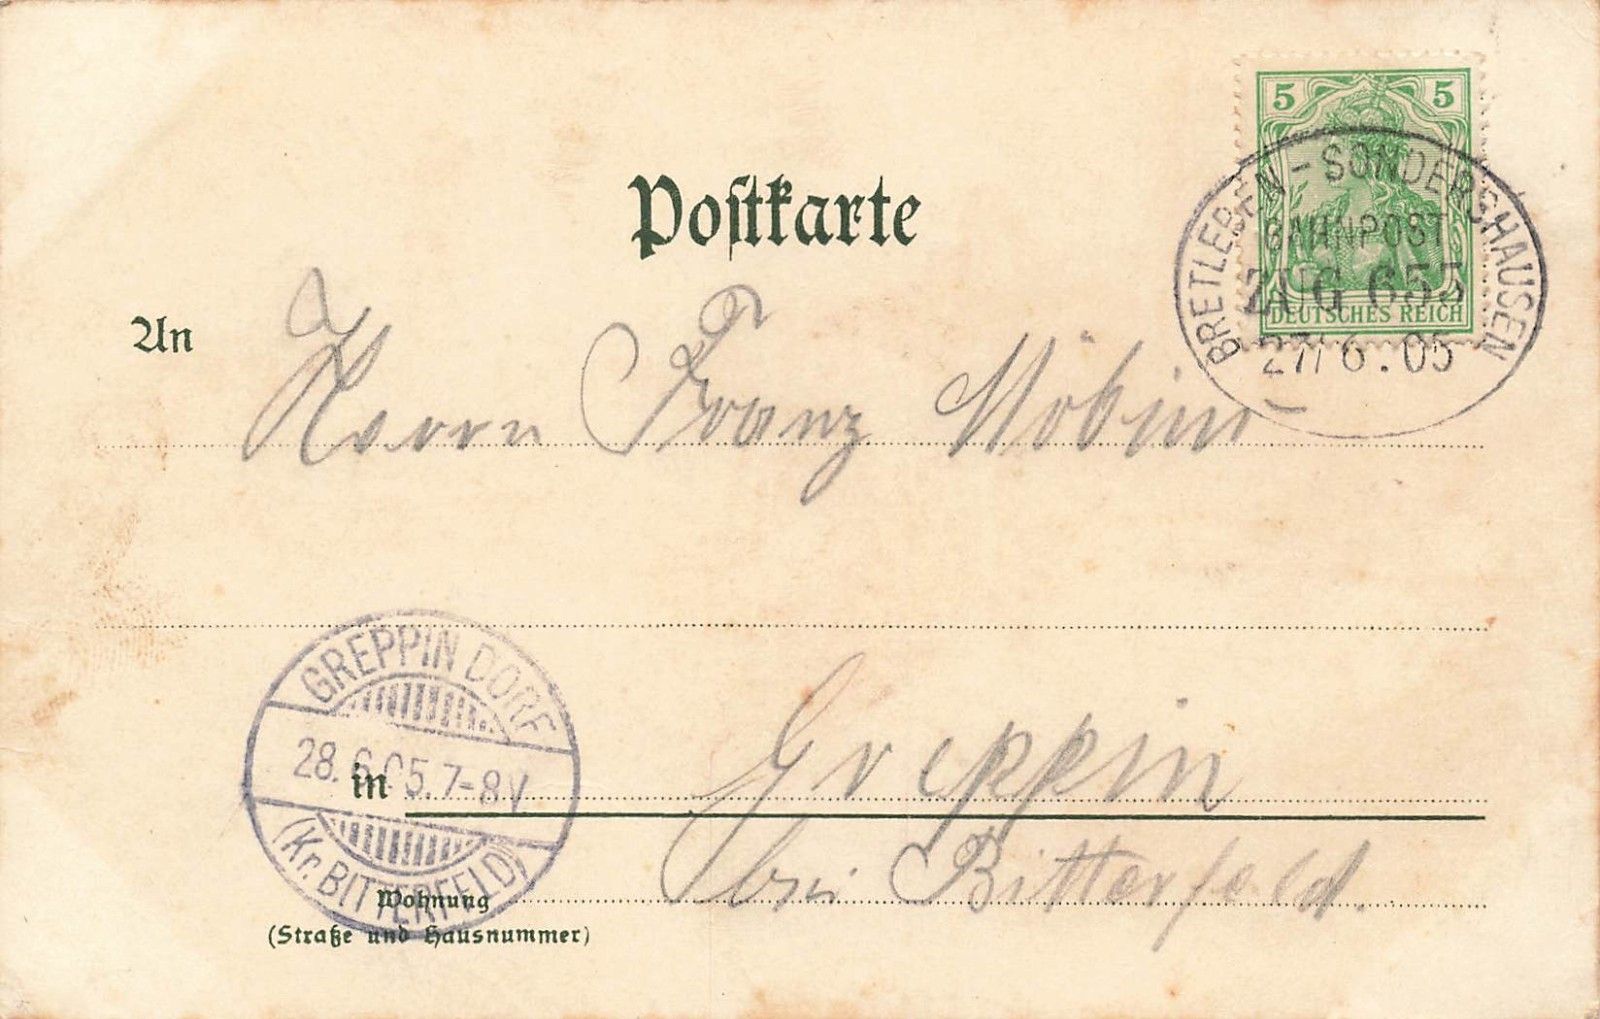 5 5
DEUTSCHES REICH
BRETLEBEN - SONDERSHAUSEN
BAHNPOST
ZUG 655
27/6.05
Postkarte
An
Herrn Franz Möbius
GREPPIN DORF
28.6.05.7-8V
(Kr. BITTERFELD)
in
Greppin
bei Bitterfeld.
Wohnung
(Straße und Hausnummer)